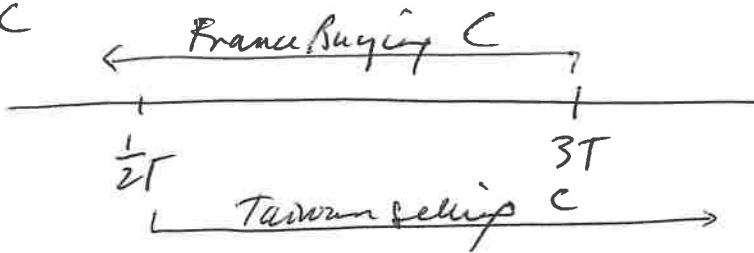 C
France Buying C
½T 3T
Taiwan selling C